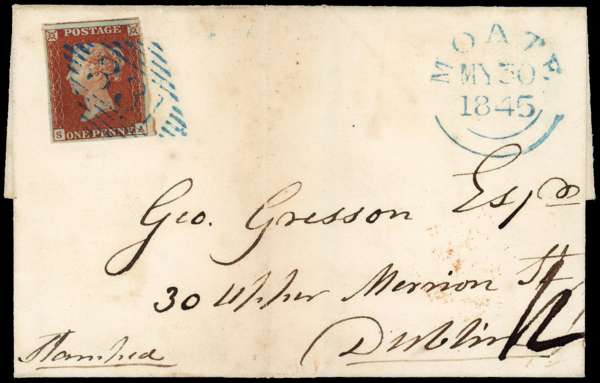 POSTAGE
S ONE PENNY A
MOATE
MY 30
1845
Geo. Gresson Esqr
30 Upper Merrion St
Dublin
Stamped